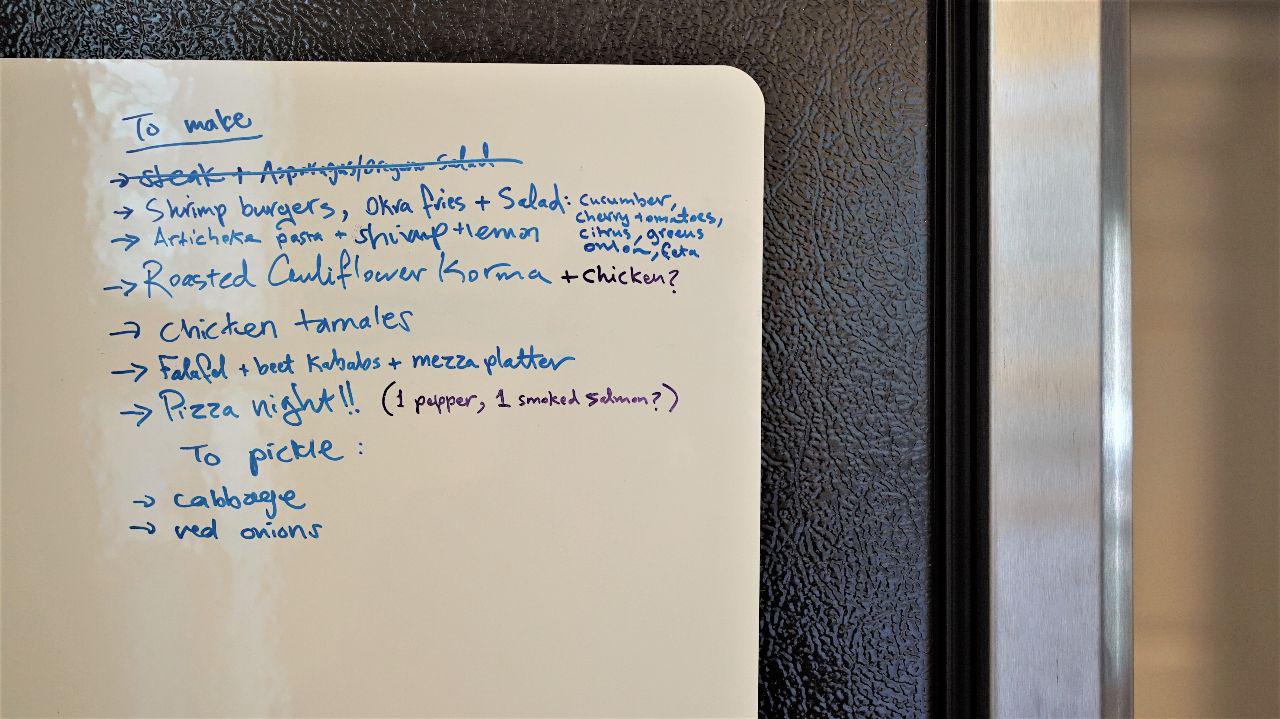 To make
→ steak + Asparagus/ Salad
→ Shrimp burgers, Okra fries + Salad: cucumber,
cherry tomatoes,
→ Artichoke pasta + shrimp + lemon citrus, greens
onion, feta
→ Roasted Cauliflower Korma + chicken?
→ chicken tamales
→ Falafel + beet Kababs + mezza platter
→ Pizza night!! (1 pepper, 1 smoked salmon?)
To pickle:
→ cabbage
→ red onions